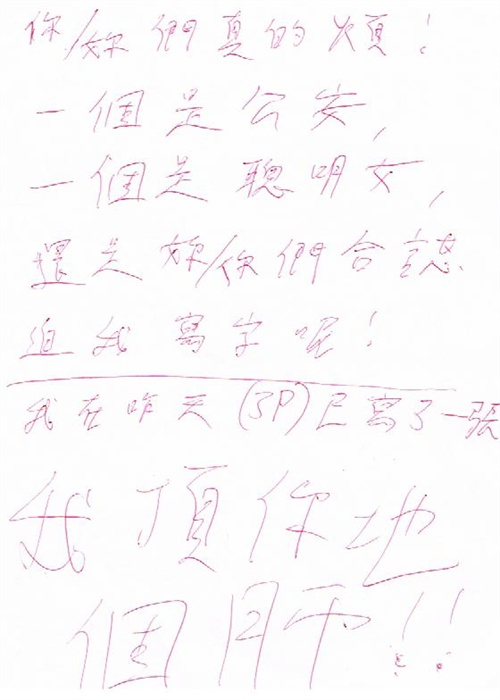 你/妳們真的煩！
一個是公安，
一個是聰明女，
還是妳/你們合謀
迫我寫字呢！
我在昨天(3P)已寫了一張
我頂你地
個肺！！